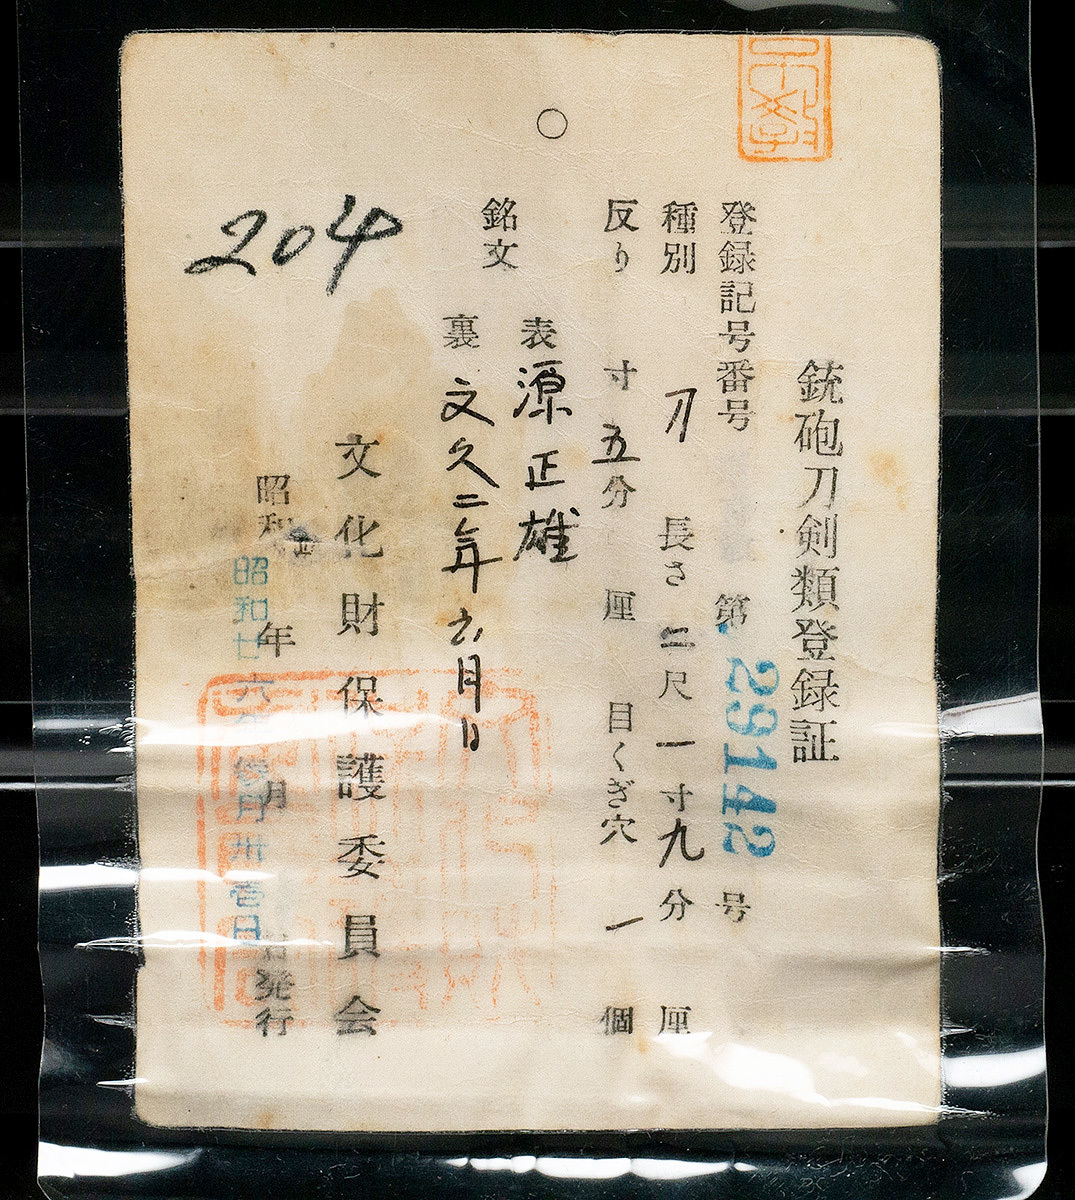 銃砲刀剣類登録証
登録記号番号 第 29142 号
種別 刀 長さ 二尺一寸九分 厘
反り 寸五分 厘 目くぎ穴 一 個
銘文
表 源正雄
裏 文久二年六月日
文化財保護委員会
昭和 年 月 発行
昭和廿六年 月卅壱日
204